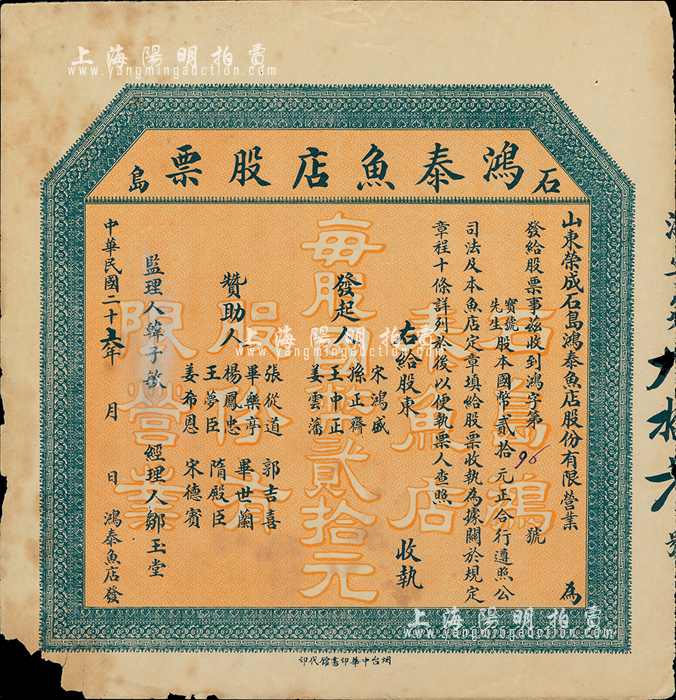 上海陽明拍賣
www.yangmingauction.com
石島鴻泰魚店股票
山東榮成石島鴻泰魚店股份有限營業 為
發給股票事茲收到鴻字第 90 號
寶號
先生 股本國幣貳拾元正合行遵照公
司法及本魚店定章填給股票收執為據關於規定
章程十條詳列於後以便執票人查照
右給股東 收執
發起人
宋鴻盛
孫正齊
王中正
姜雲藩
贊助人
張從道
畢樂亭
楊鳳忠
王夢臣
姜希恩
郭吉喜
畢世蘭
隋殿臣
宋德賓
監理人韓子敬 經理人鄒玉堂
中華民國二十六年 月 日 鴻泰魚店發
石島鴻泰魚店
每股國幣貳拾元
股份有限營業
上海陽明拍賣
www.yangmingauction.com
上海陽明拍賣
www.yangmingauction.com
烟台中華印書館代印